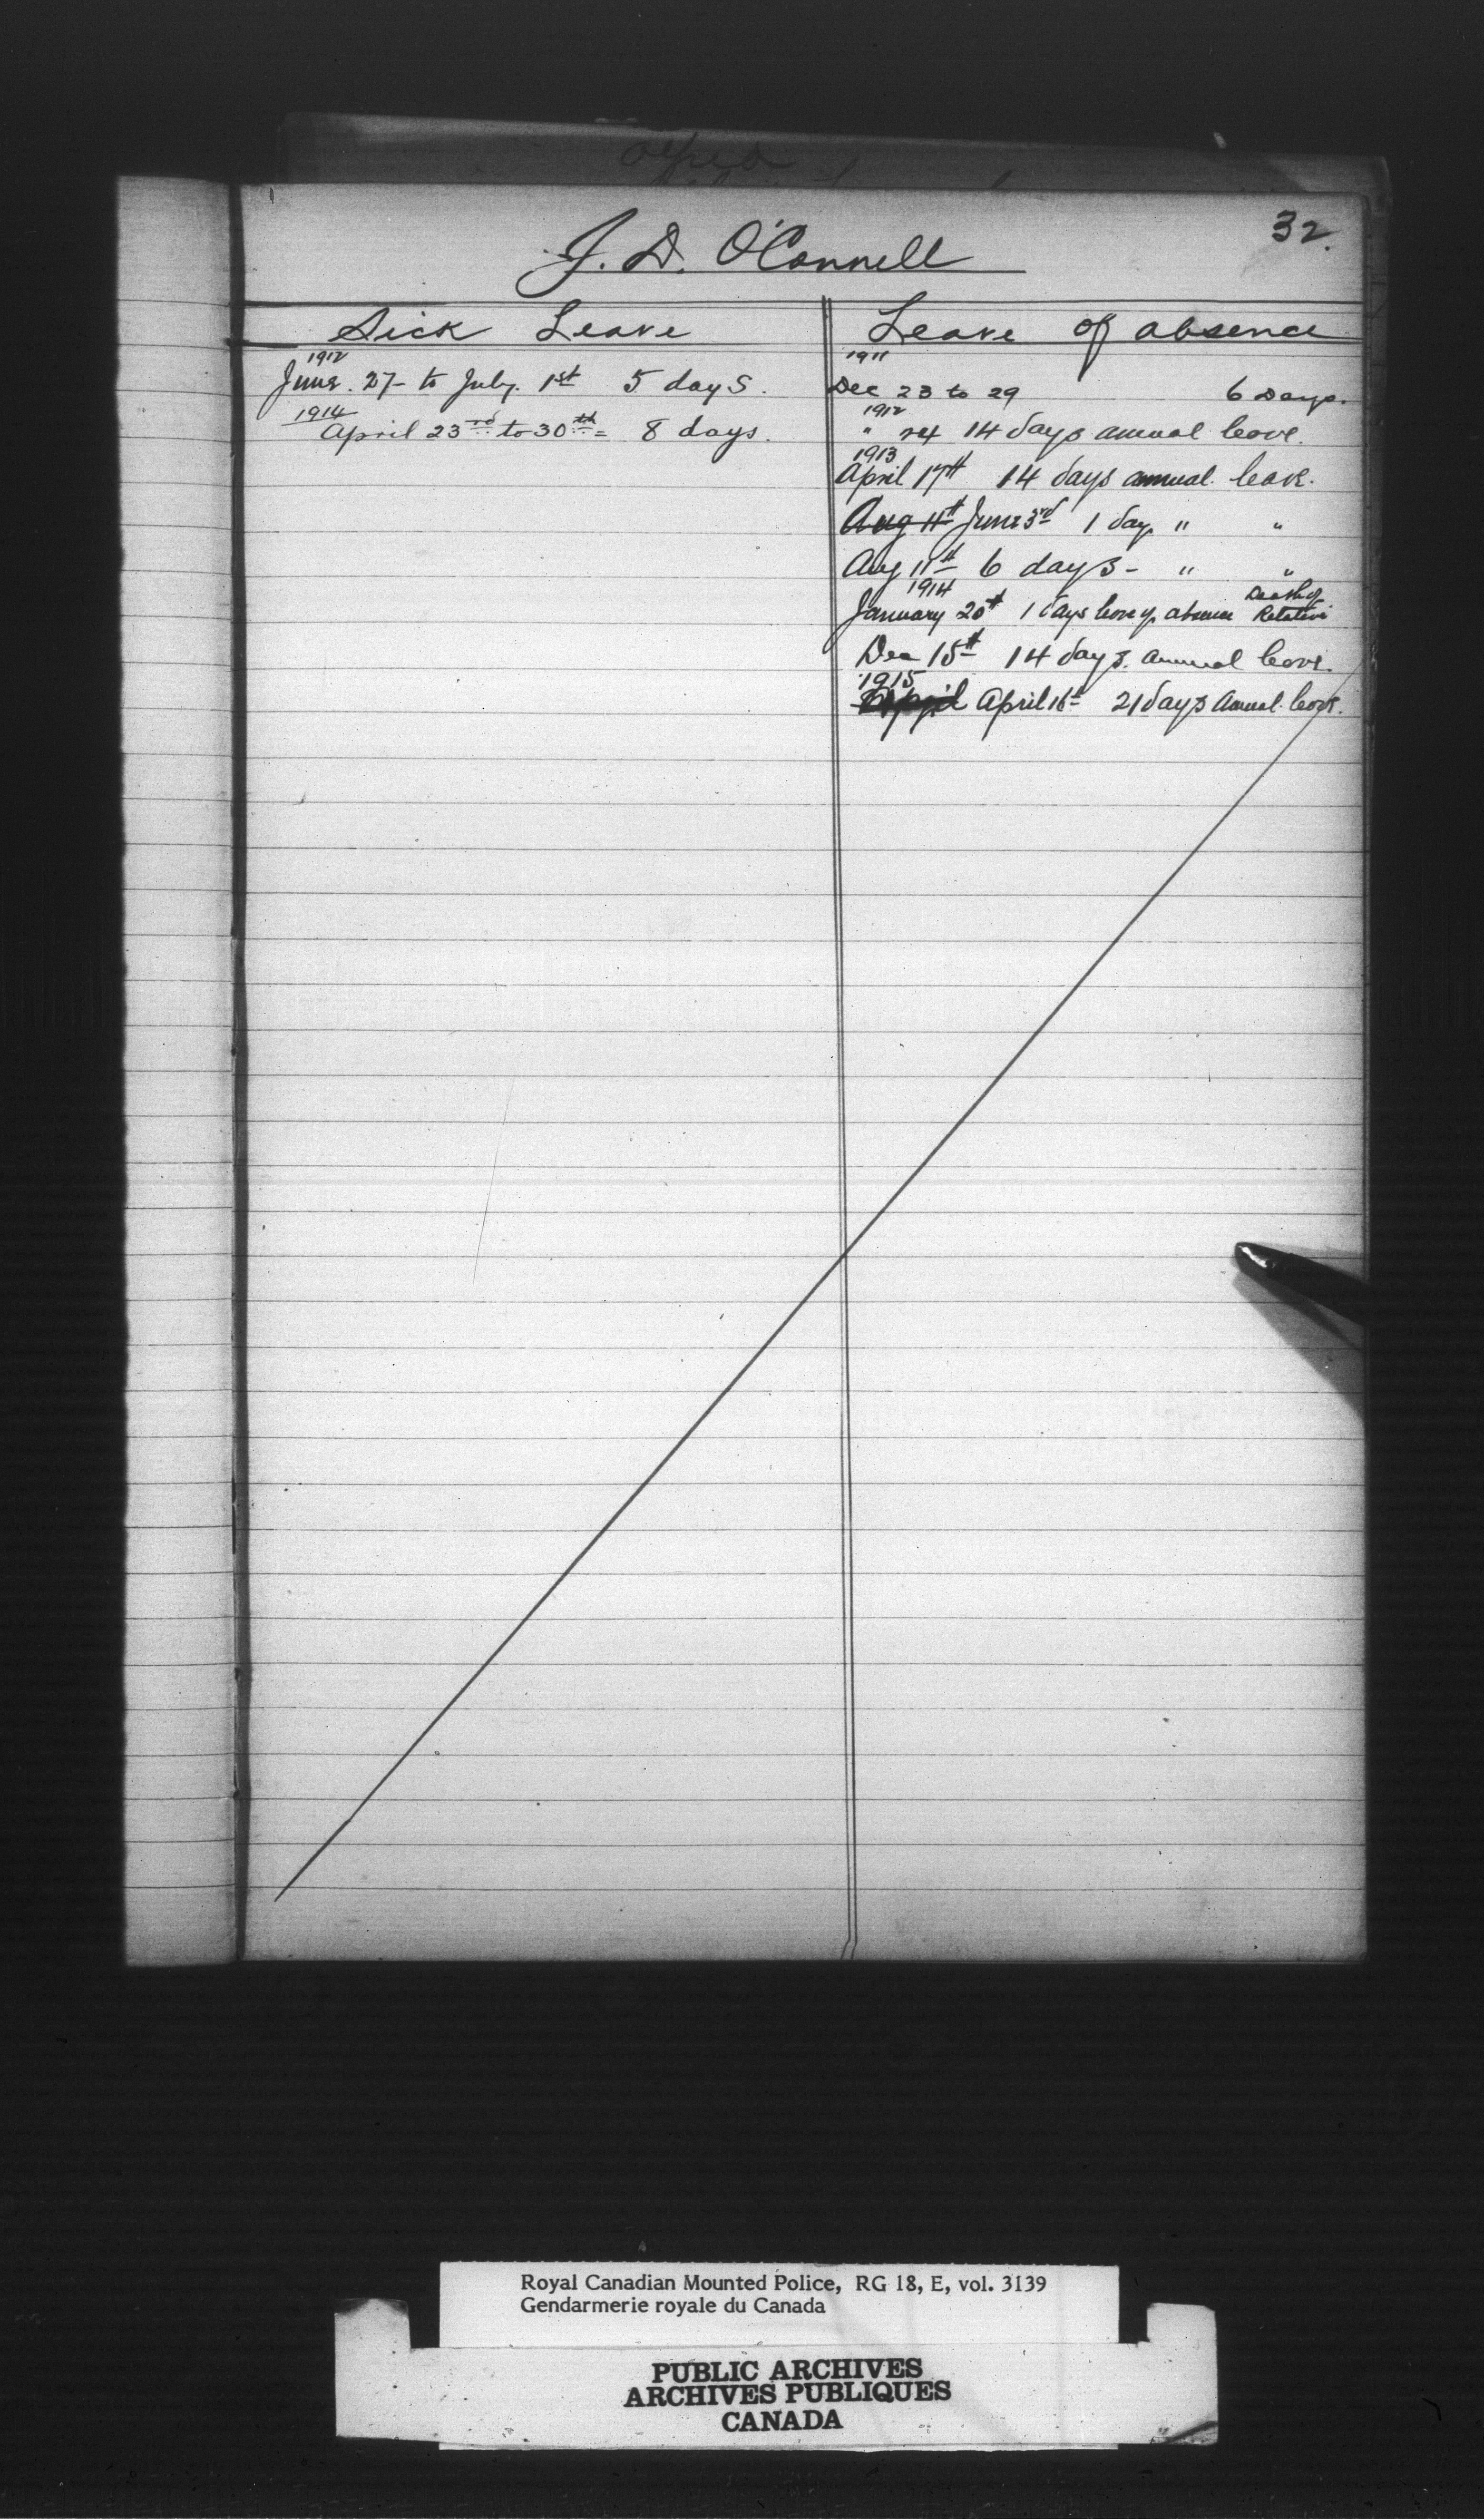 32.
J. D. O'Connell
Sick Leave
1912
June. 27- to July. 1st 5 days.
1914
April 23rd to 30th = 8 days.
Leave of absence
1911
Dec 23 to 29 6 Days.
1912
" 24 14 days annual leave.
1913
April 17th 14 days annual leave.
Aug 11th June 3rd 1 day " "
Aug 11th 6 days - " "
1914
January 20th 1 days leave of absence Death of Relative
Dec 15th 14 days. annual leave.
1915
April April 16th 21 days Annual leave.
Royal Canadian Mounted Police, RG 18, E, vol. 3139
Gendarmerie royale du Canada
PUBLIC ARCHIVES
ARCHIVES PUBLIQUES
CANADA